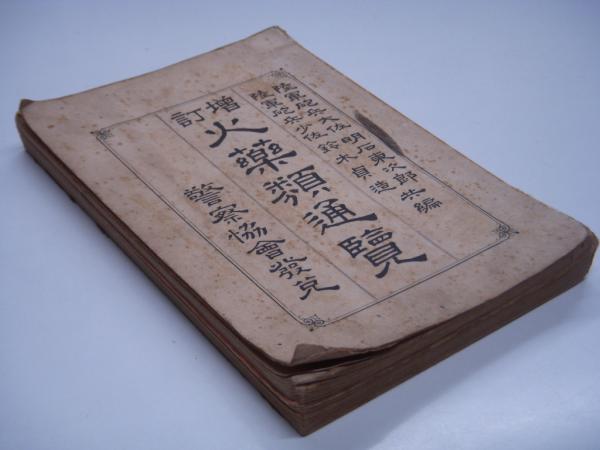 陸軍砲兵大佐明石東次郎共編
陸軍砲兵少佐鈴木貞造
増訂
火藥類通覽
警察協會發兌